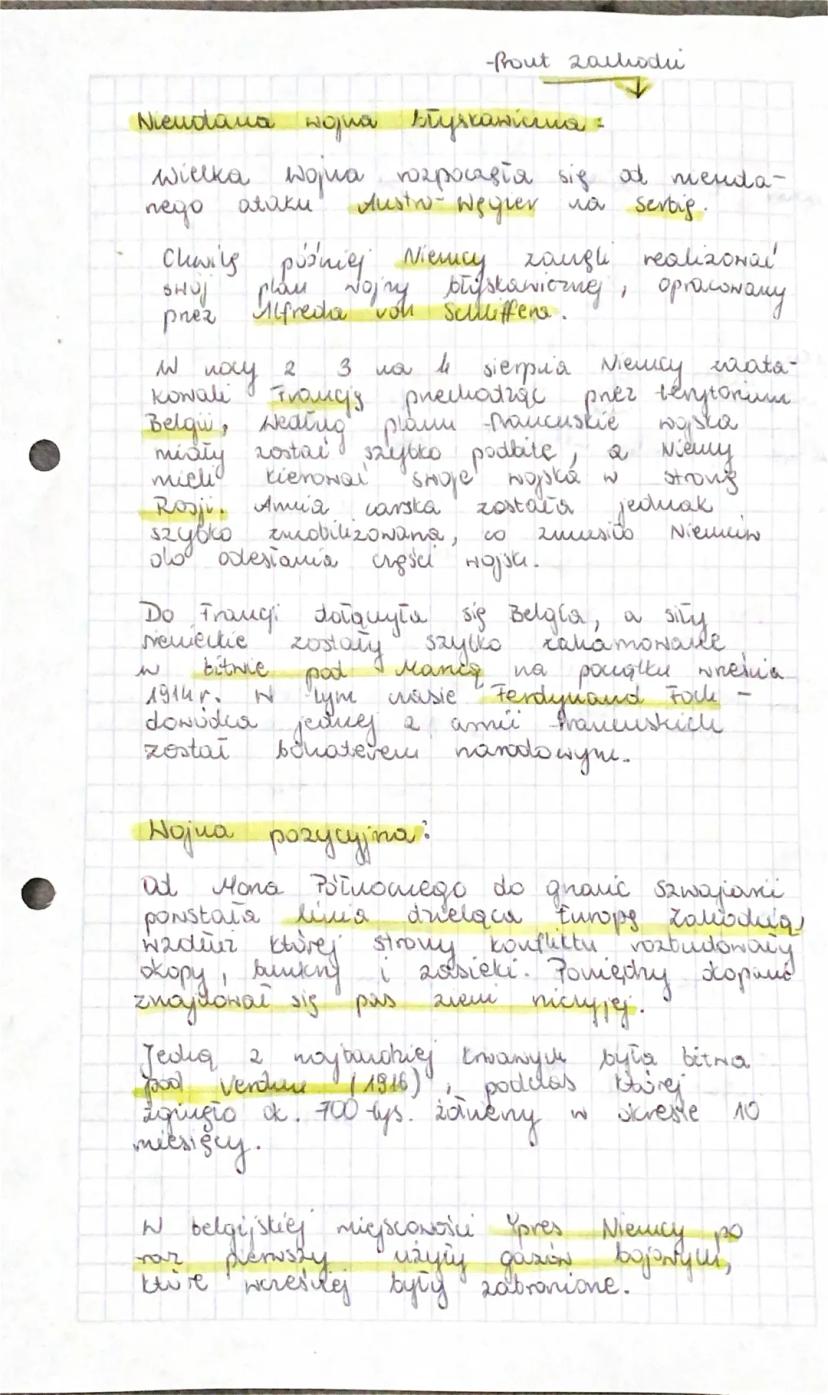 -Front zachodni
Nieudana wojna błyskawiczna:
Wielka Wojna rozpoczęła się od nieuda-
nego ataku Austro-Węgier na Serbię.
Chwilę później Niemcy zaczęli realizować
swój plan wojny błyskawicznej, opracowany
przez Alfreda von Schlieffena.
W nocy z 3 na 4 sierpnia Niemcy zaata-
kowali Francję przechodząc przez terytorium
Belgii, według planu francuskie wojska
miały zostać szybko podbite, a Niemcy
mieli kierować swoje wojska w stronę
Rosji. Armia carska została jednak
szybko zmobilizowana, co zmusiło Niemców
do odesłania części wojsk.
Do Francji dołączyła się Belgia, a siły
niemieckie zostały szybko zahamowane
w bitwie pod Marną na początku września
1914r. W tym czasie Ferdynand Foch -
dowódca jednej z armii francuskich
został bohaterem narodowym.
Wojna pozycyjna:
Od Morza Północnego do granic Szwajcarii
powstała linia dzieląca Europę Zachodnią,
wzdłuż której strony konfliktu rozbudowały
okopy, bunkry i zasieki. Pomiędzy okopami
znajdował się pas ziemi niczyjej.
Jedną z najbardziej krwawych była bitwa
pod Verdun (1916), podczas której
zginęło ok. 700 tys. żołnierzy w okresie 10
miesięcy.
W belgijskiej miejscowości Ypres Niemcy po
raz pierwszy użyły gazów bojowych,
które wcześniej były zabronione.